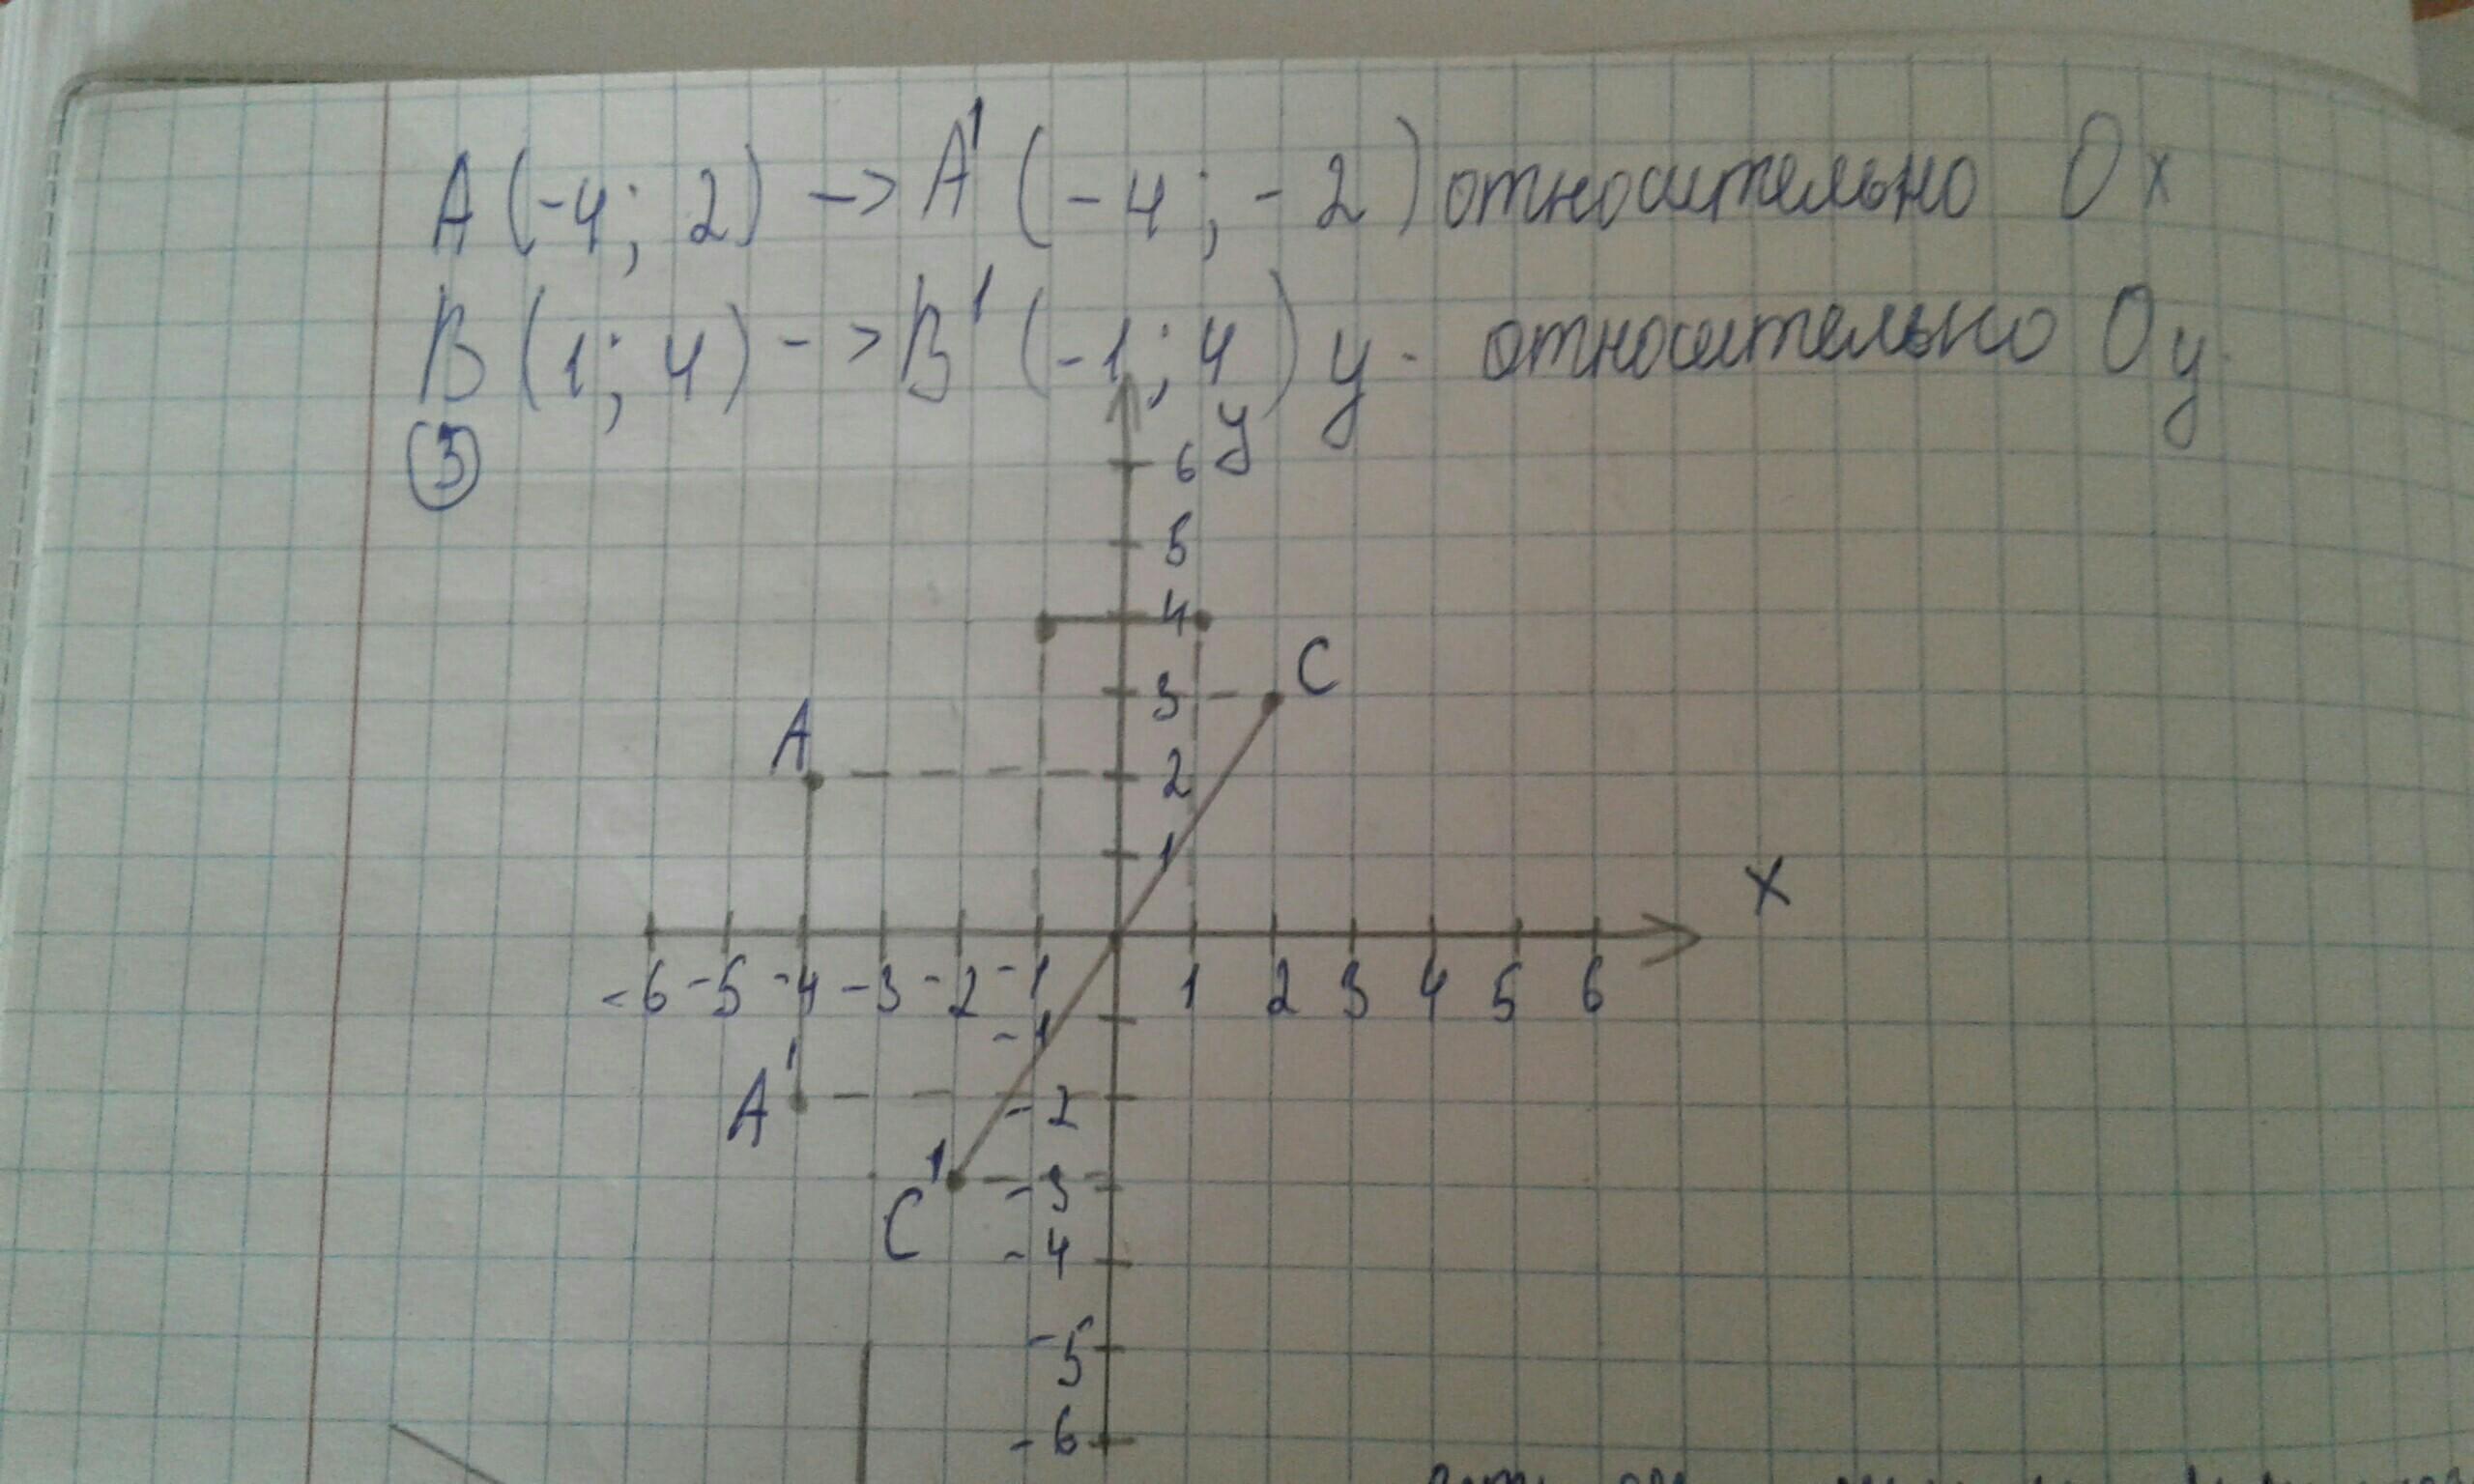 A (-4; 2) -> A¹ (-4; -2) относительно Ox
B (1; 4) -> B¹ (-1; 4) y - относительно Oy
③
y
6
5
4
C
3
A
2
1
x
-6 -5 -4 -3 -2 -1 1 2 3 4 5 6
-1
A¹ -2
C¹ -3
-4
-5
-6